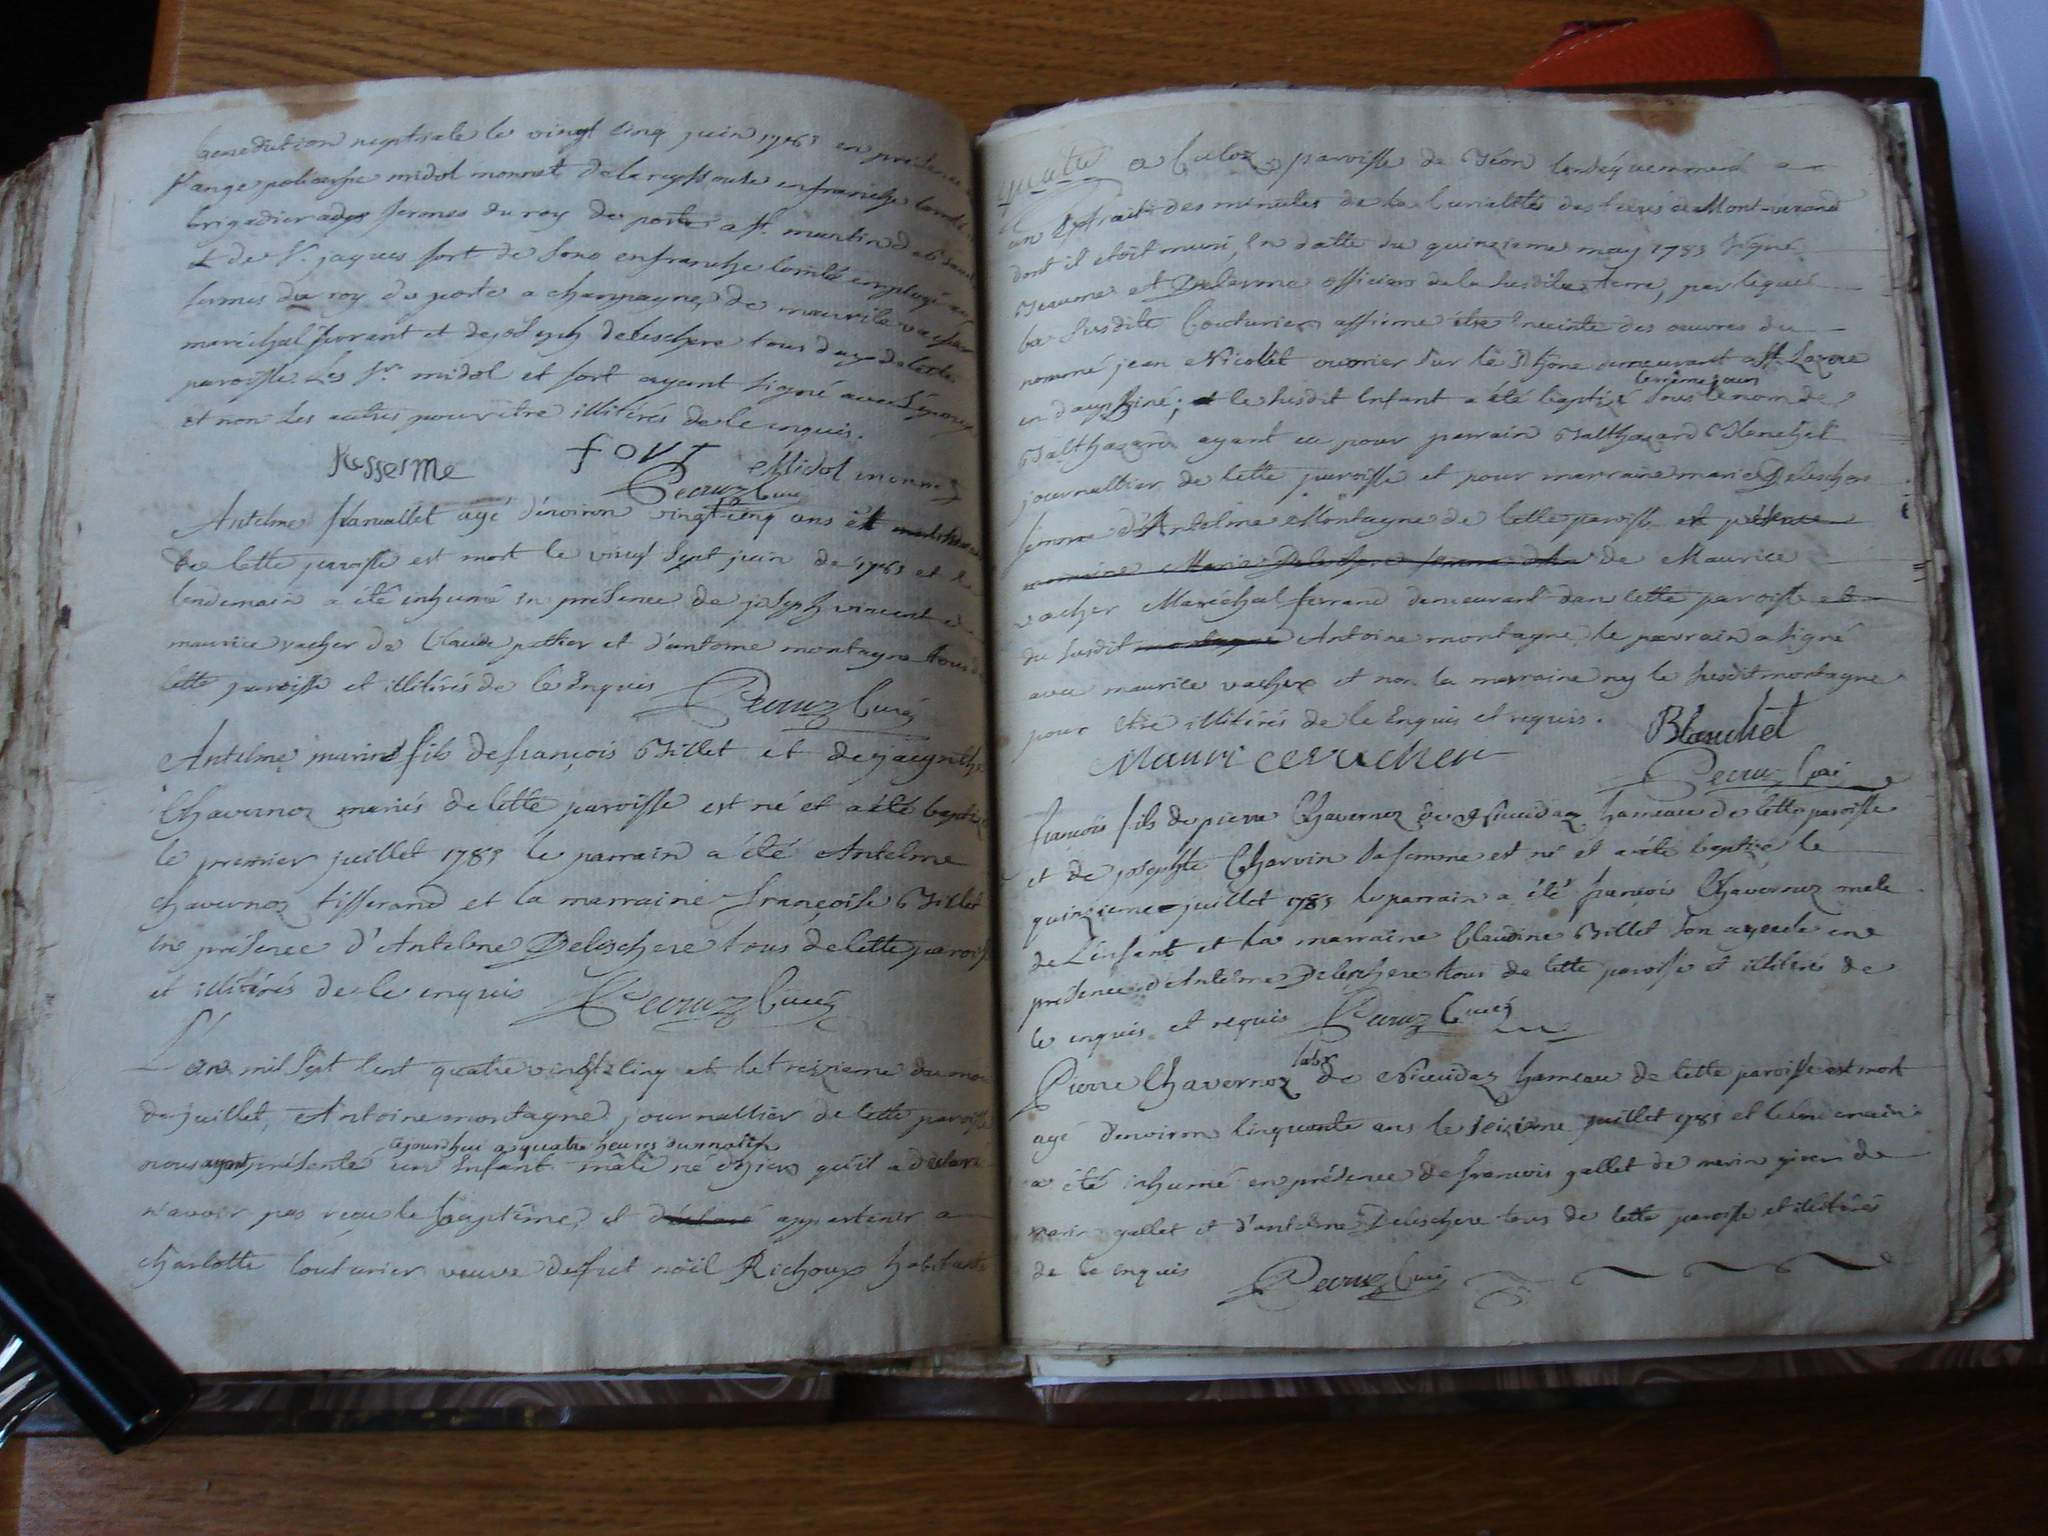 benediction nuptiale le vingt cinq juin 1785 en présence
Sr ange policarpe midol monnet de la reyssouse en franche comté
brigadier fermes du roy de poste a St. martin de
& de Sr. jaques fort de Sono en franche Comté employé
fermes du roy du poste a champagne, de maurile vacher
maréchal ferrant et de joseph deleschere tous deux de cette
paroisse. Les Srs midol et fort ayant signé avec l'epoux
et non les autres pour être illitérés de ce enquis.
fort Midol monnet
Pecruz Curé
Antelme agé d'environ vingt cinq ans
de cette paroisse est mort le vingt sept juin de 1785 et le
lendemain a été inhumé en présence de joseph vincent de
maurice vacher de Claude pettier et d'antoine montagne tous de
cette paroisse et illitérés de ce enquis Pecruz Curé
Antelme marin fils de françois Billet et de jacynthe
Chavernoz mariés de cette paroisse est né et a été baptisé
le premier juillet 1785 le parrain a été Antelme
chavernoz tisserand et la marraine françoise Billet
en présence d'Antelme Deleschere tous de cette paroisse
et illitérés de ce enquis Pecruz Curé
L'an mil sept cent quatre vingt cinq et le treizieme du mois
de juillet, Antoine montagne journallier de cette paroisse
aujourdhui a quatre heures du matin
nous ayant présenté un Enfant mâle né d'hier qu'il a déclaré
n'avoir pas reçu le baptême, et déclaré appartenir a
charlotte Couturier veuve de fut noël Richoux habitante
quatre a Culoz paroisse de Béon Conséquemment a
un Extrait des minutes de la Curialité des terres de Mont-verand
dont il etoit muni, En datte du quinzieme may 1785 signé
Beaume et Delerme officiers de la susdite terre, par lequel
la susdite Couturier affirme être Enceinte des oeuvres du
nommé jean Nicolet ouvrier sur le Rhône demeurant a St. Lazare
le même jour
en dauphiné; et le susdit Enfant a été baptisé sous le nom de
Balthazard ayant eu pour parrain Balthazard Blanchet
journallier de cette paroisse et pour marraine marie Deleschere
femme d'Antoine Montagne de cette paroisse et présence
marraine Marie Deleschere femme de Maurice
vacher Maréchal ferrand demeurant dans cette paroisse et
du susdit montagne Antoine montagne, le parrain a signé
avec maurice vacher et non la marraine ny le susdit montagne
pour être illitérés de ce Enquis et requis. Blanchet
Maurice vacher
Pecruz Curé
françois fils de pierre Chavernoz de hameau de cette paroisse
et de josephte Charvin sa femme est né et a été baptisé le
quinzieme juillet 1785 le parrain a été françois Chavernoz
de L'enfant et la marraine Claudine Billet son ayeule en
présence d'Antelme Deleschere tous de cette paroisse et illitérés de
ce enquis et requis Pecruz Curé
labr
Pierre Chavernoz de hameau de cette paroisse est mort
agé d'environ cinquante ans le seizieme juillet 1785 et le lendemain
a été inhumé en présence de francois gallet de marin
marin gallet et d'antelme Deleschere tous de cette paroisse et illitérés
de ce enquis Pecruz Curé